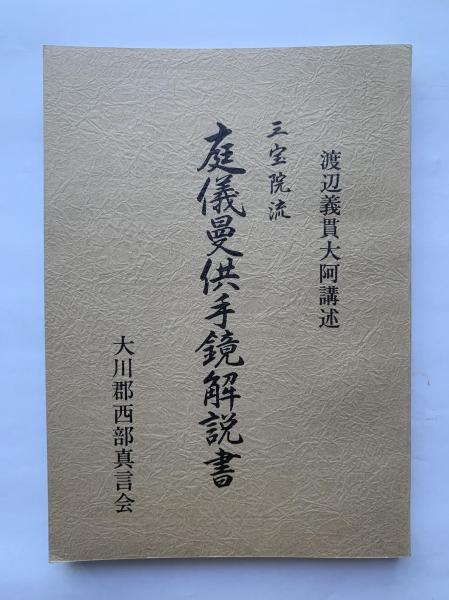 渡辺義貫大阿講述
三宝院流
庭儀曼供手鏡解説書
大川郡西部真言会